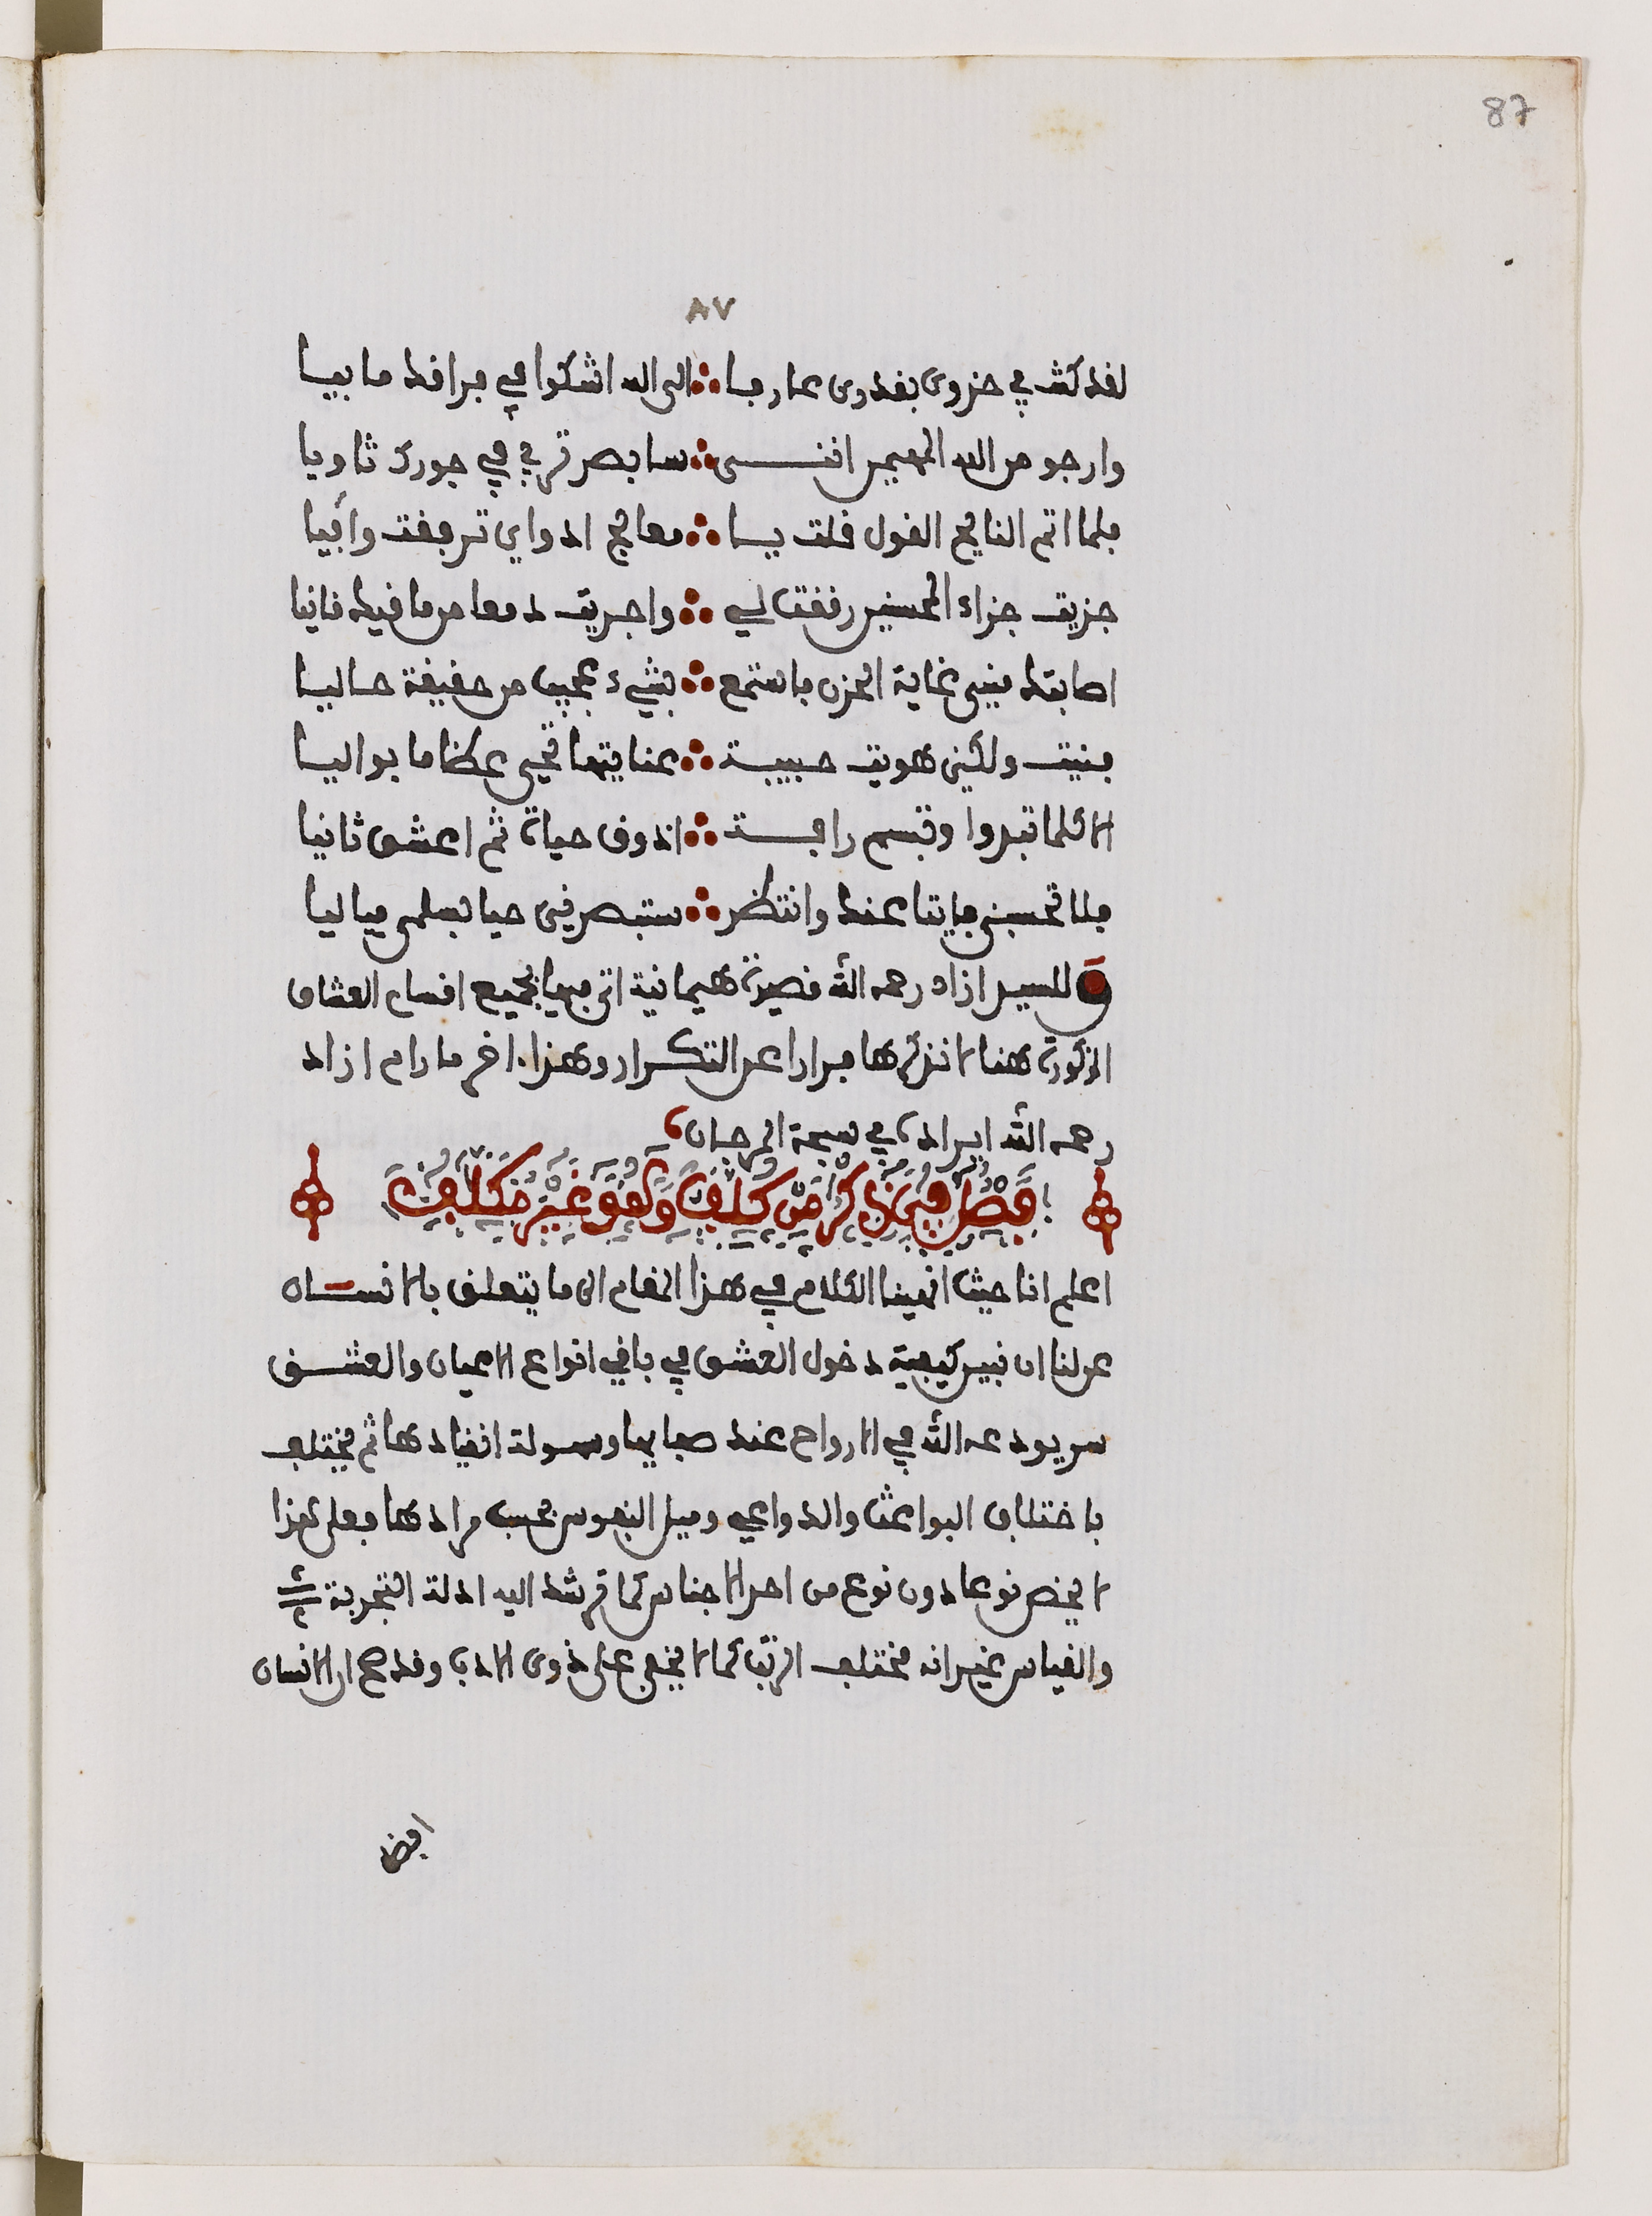 87
٨٧
لقد كنت في حزوى بقدرى عارفا ∴ الى الله اشكوا في فراقك ما بيا
وارجو من الله المهيمن انني ∴ سابصر قربي في جورك ثاويا
فلما اتم الناصح القول قلت يا ∴ معالج ادواي ترفقت وافيا
جزيت جزاء المحسنين رفقت لي ∴ واجريت دمعا من ما فيك قانيا
اصابك مني غاية الحزن فاستمع ∴ بشيء عجيب من حقيقة حاليا
فنيت ولكني هويت حبيبة ∴ عنايتها تحيى عظاما بواليا
الا كلما تبدوا وتبسم رافة ∴ اذوق حياة ثم اعشق ثانيا
فلا تحسبني فايتا عنك وانتظر ∴ ستبصرني حيا بسلمى مياليا
وللسيد ازاد رحمه الله قصيدة هيمانية اتى فيها بجميع اقسام العشاق
المذكورة هنا لا نذكرها فرارا عن التكرار وهذا اخر ما رام ازاد
رحمه الله ايراده في سبحة المرجان
فصل في ذكر من كلف وهو غير مكلف
اعلم انا حيث انهينا الكلام في هذا المقام الى ما يتعلق بالانسان
عن لنا ان نبين كيفية دخول العشق في باقي انواع الاعيان والعشق
سر يودعه الله في الارواح عند صفايها وسهولة انقيادها ثم يختلف
باختلاف البواعث والدواعي وميل النفوس بحسب مرادها فعلى هذا
لا يخص نوعا دون نوع من احد الاجناس كما ترشد اليه ادلة التجربة
والقياس غير انه مختلف الرتب كما لا يخفى على ذوى الادب وقد صح ان الانسان
افض